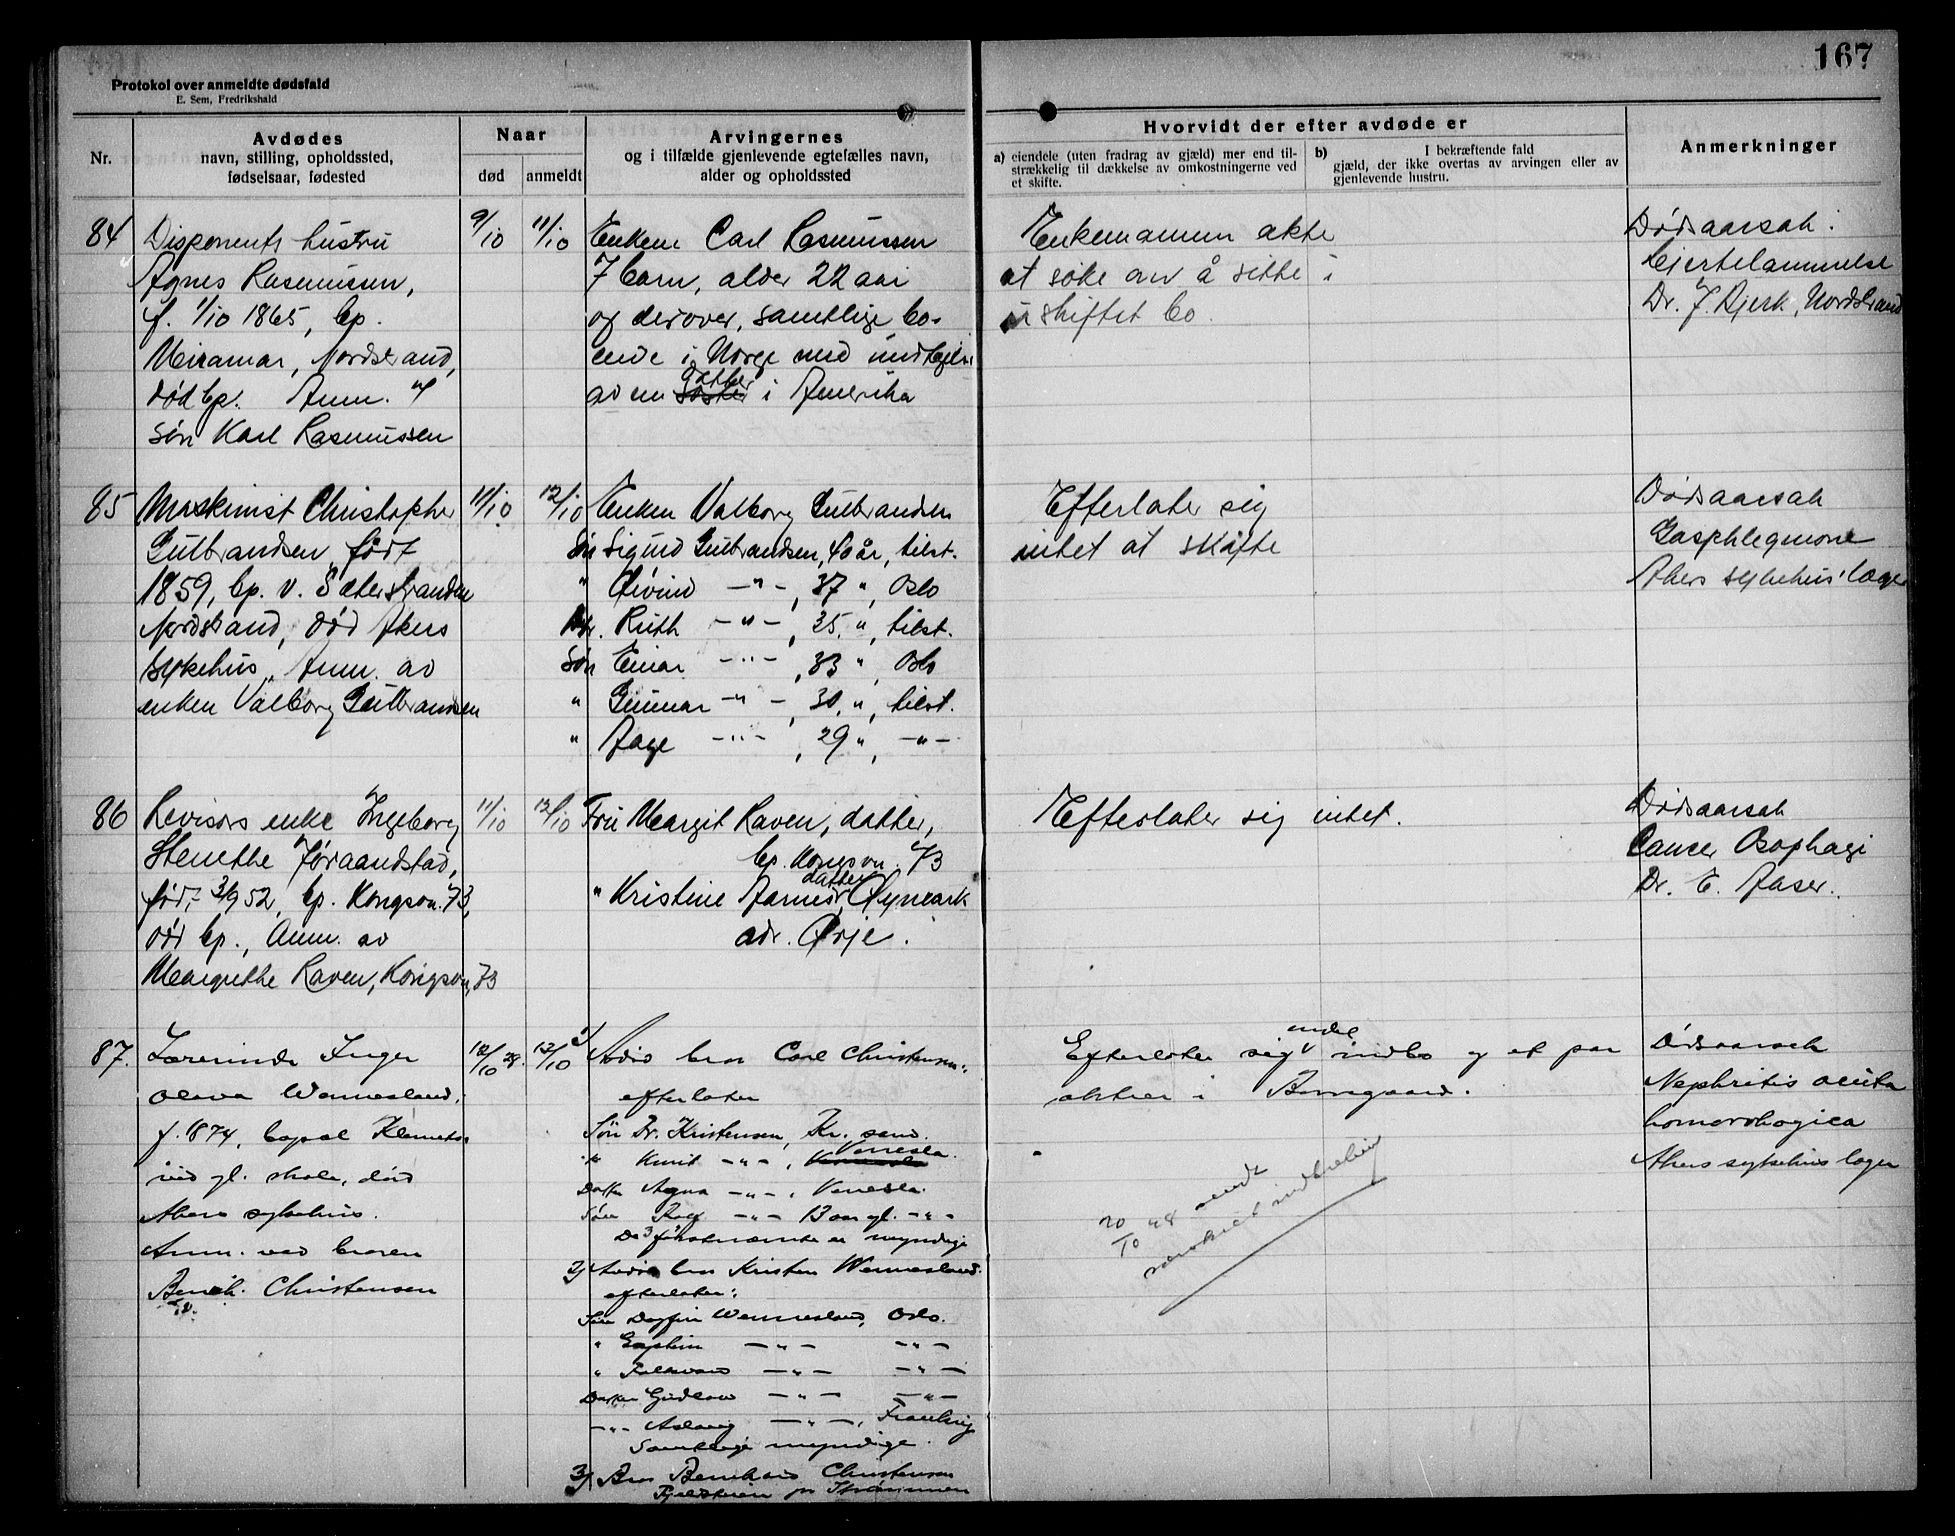 167
Protokol over anmeldte dødsfald
E. Sem, Fredrikshald
Nr.
Avdødes
navn, stilling, opholdssted,
fødselsaar, fødested
Naar
død
anmeldt
Arvingernes
og i tilfælde gjenlevende egtefælles navn,
alder og opholdssted
Hvorvidt der efter avdøde er
a) eiendele (uten fradrag av gjæld) mer end til-
strækkelig til dækkelse av omkostningerne ved
et skifte.
b) I bekræftende fald
gjæld, der ikke overtas av arvingen eller av
gjenlevende hustru.
Anmerkninger
84
Disponents hustru
Agnes Rasmussen,
f. 1/10 1865, bp.
Miramar, Nordstrand,
død bp. Anm. af
søn Karl Rasmussen
9/10
11/10
Enkem. Carl Rasmussen
7 barn, alder 22 aar
og derover, samtlige bo-
ende i Norge med undtagelse
av en søster datter i Amerika
Enkemannen akter
at søke om å sitte i
uskiftet bo.
Dødsaarsak:
Hjertelammelse
Dr. J. Bjerk, Nordstrand
85
Maskinist Christopher
Gulbrandsen, født
1859, bp. v. Sæterstranden
Nordstrand, død Akers
sykehus, Anm. av
enken Valborg Gulbrandsen
11/10
12/10
Enken Valborg Gulbrandsen
Søn Sigurd Gulbrandsen, 40 år, tilst.
" Øivind —"—, 37 ", Oslo
Dtr. Ruth —"—, 35 ", tilst.
Søn Einar —"—, 33 ", Oslo
" Gunnar —"—, 30 ", tilst.
" Aage —"—, 29 ", —"—
Efterlater sig
intet at skifte
Dødsaarsak
Gasphlegmone
Akers sykehus' læger
86
Revisors enke Ingeborg
Stenethe Jøraandstad,
född 3/9 52, bp. Kongsv. 73,
død bp., Anm. av
Margrethe Raven, Kongsv. 73
11/10
12/10
Fru Margit Raven, datter,
bp. Kongsv. 73
" Kristine Aarnes, datter Øymark
adr. Ørje.
Efterlater sig intet.
Dødsaarsak
Cancer Osophagi
Dr. E. Aaser.
87.
Lærerinde Inger
Olava Wennesland,
f. 1874, bopæl Klemets-
rud gl. skole, død
Akers sykehus.
Anm. ved broren
Bernh. Christensen
12/10 28.
13/10
1/ Avdød bror Carl Christensen:
efterlater
Søn Dr. Kristensen, Kr. sand.
" Knut —"—, Vennesla.
Datter Agna —"—, Vennesla.
Søn Rolf —"— 13 aar gl. —"—
De 3 førstnævnte er myndige
2/ Avdød bror Kristen Wennesland.
efterlater:
Søn Dagfin Wennesland, Oslo.
" —"— —"—
" Folkvard —"— —"—
Datter Gudlaug —"— —"—
—"— Aslaug —"—,
Samtlige myndige.
3/ Bror Bernhard Christensen
Efterlater sig endel indbo og et par
aktier i Bergaard.
20/10 28 sendt
særskilt indberetning
Dødsaarsak
Nephritis acuta
homorrhagica
Akers sykehus læger